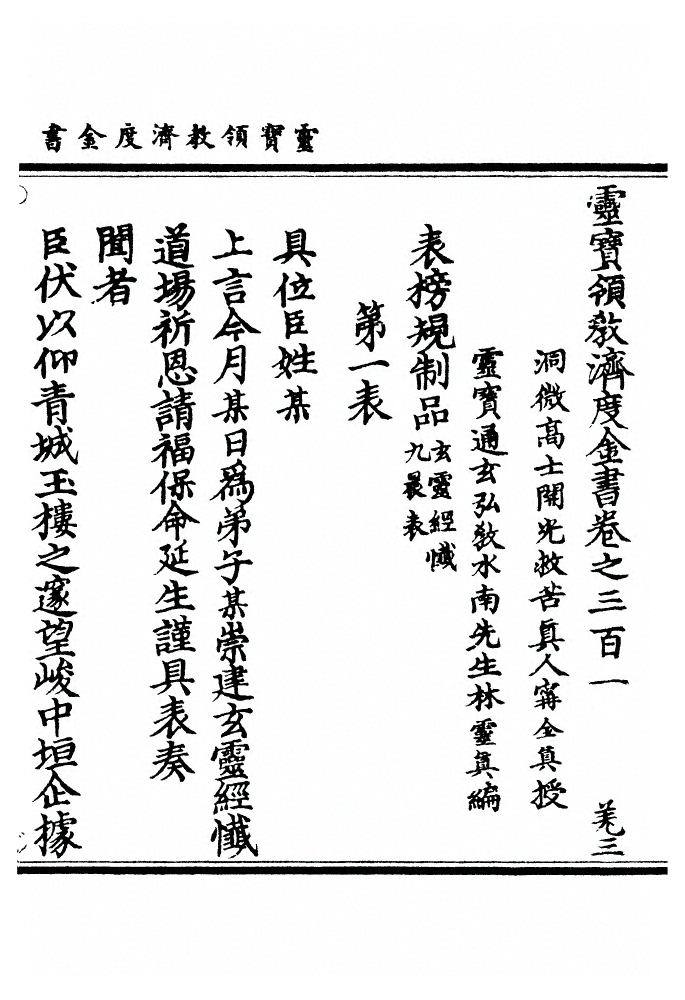 靈寶領教濟度金書
靈寶領敎濟度金書卷之三百一
羌三
洞微高士開光救苦眞人甯全眞授
靈寶通玄弘敎水南先生林靈眞編
表榜規制品
玄靈經懺
九晨表
第一表
具位臣姓某
上言今月某日爲弟子某崇建玄靈經懺
道場祈恩請福保命延生謹具表奏
聞者
臣伏以仰青城玉樓之邃望峻中垣企據